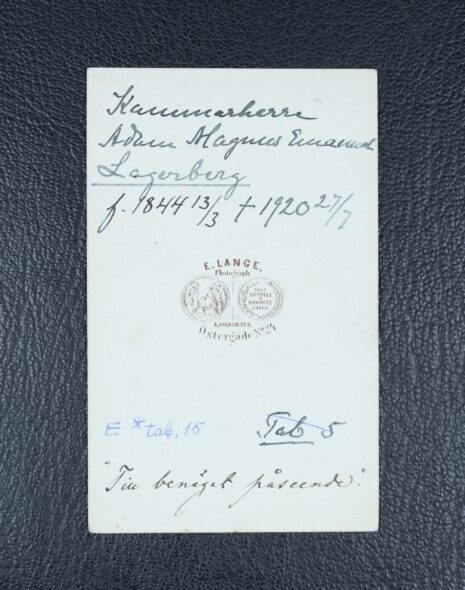 Kammarherre
Adam Magnus Emanuel
Lagerberg
f. 1844 13/3 + 1920 27/7
E. LANGE,
Photograph
KJÖBENHAVN
Östergade No 24
E * tab. 15
Tab 5
"Till benäget påseende".